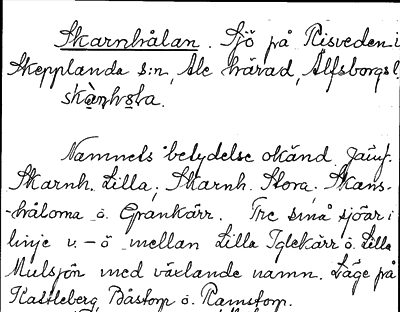 Skarnhålan. Sjö på Risveden i
Skepplanda s:n, Ale härad, Älfsborgs l
Namnets betydelse okänd. Jämf.
Skarnh. Lilla; Skarnh. Stora; Skans-
-hålorna o. Grankärr. Tre små sjöar i
linje v.-ö mellan Lilla Iglekärr o. Lilla
Mulsjön med växlande namn. Läge på
Kattleberg, Båstorp o. Ramstorp.